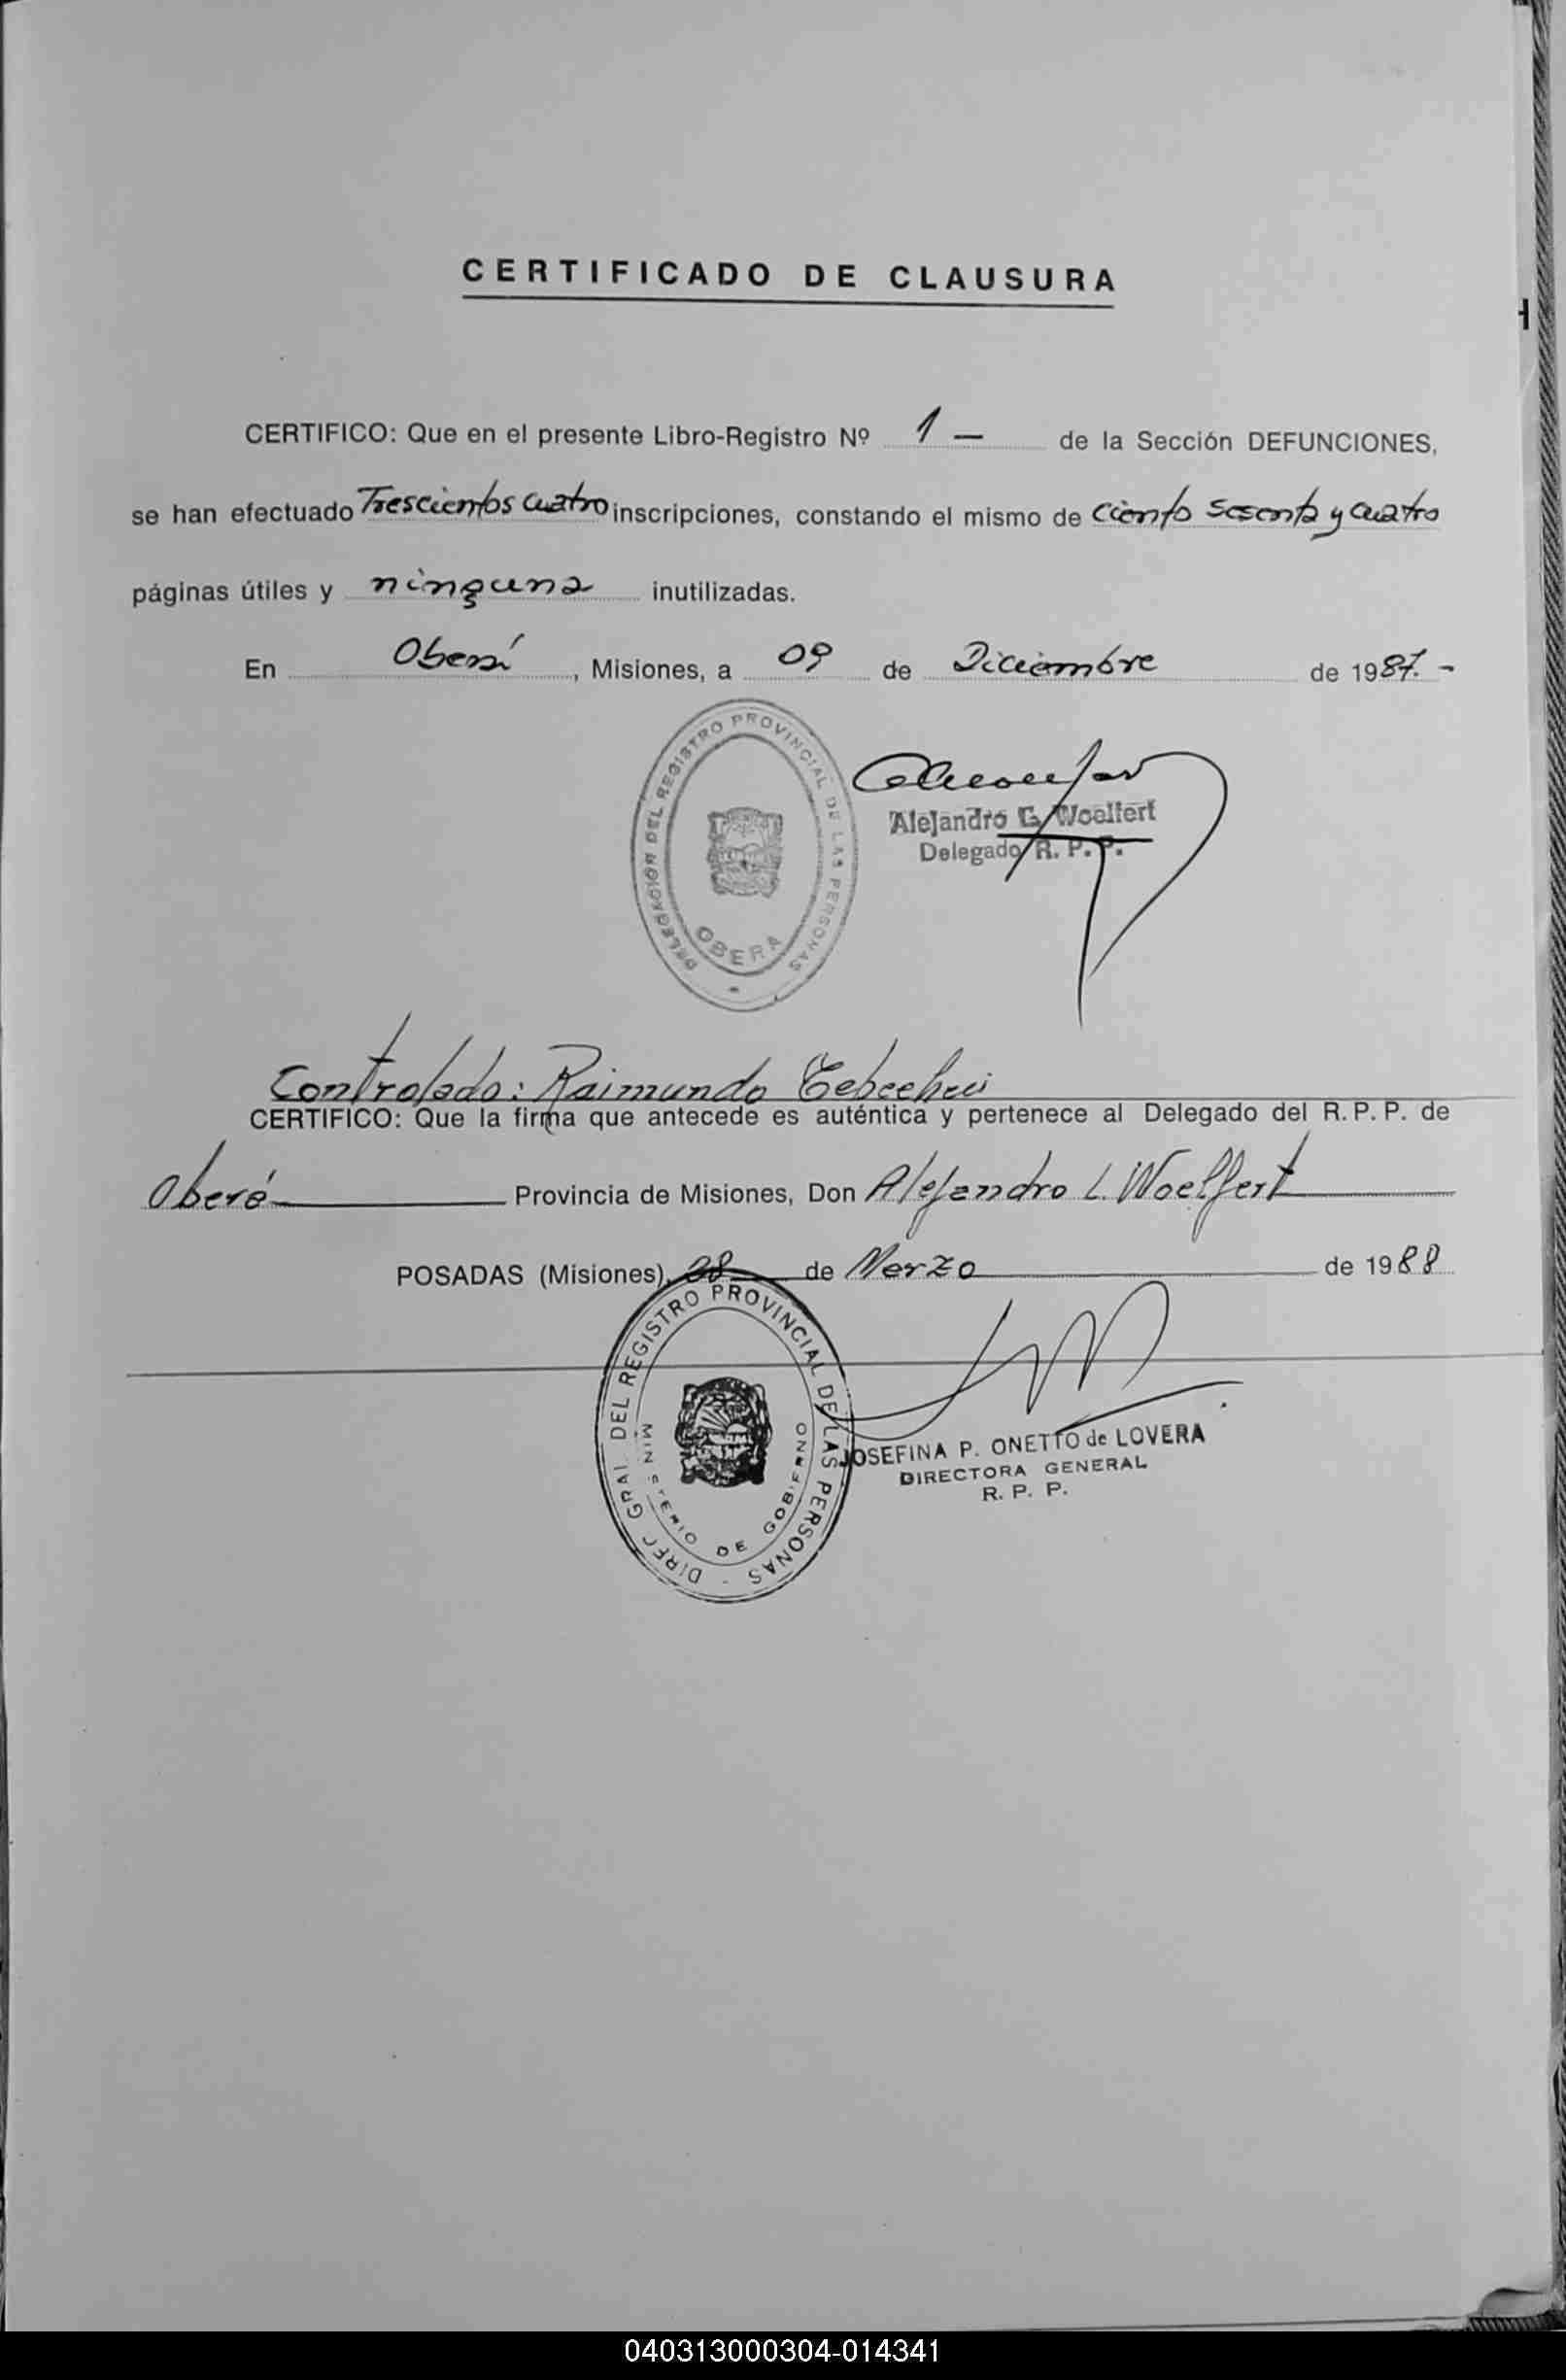 CERTIFICADO DE CLAUSURA
CERTIFICO: Que en el presente Libro-Registro Nº 1 — de la Sección DEFUNCIONES,
se han efectuado Trescientos cuatro inscripciones, constando el mismo de ciento sesenta y cuatro
páginas útiles y ninguna inutilizadas.
En Oberá, Misiones, a 09 de Diciembre de 1987.-
DELEGACION DEL REGISTRO PROVINCIAL DE LAS PERSONAS
OBERA
Alejandro G. Woelfert
Delegado R. P. P.
Controlado: Raimundo
CERTIFICO: Que la firma que antecede es auténtica y pertenece al Delegado del R. P. P. de
Oberá Provincia de Misiones, Don Alejandro L. Woelfert
POSADAS (Misiones), 28 de Marzo de 1988
DIREC. GRAL. DEL REGISTRO PROVINCIAL DE LAS PERSONAS -
MINISTERIO DE GOBIERNO
JOSEFINA P. ONETTO de LOVERA
DIRECTORA GENERAL
R. P. P.
040313000304-014341